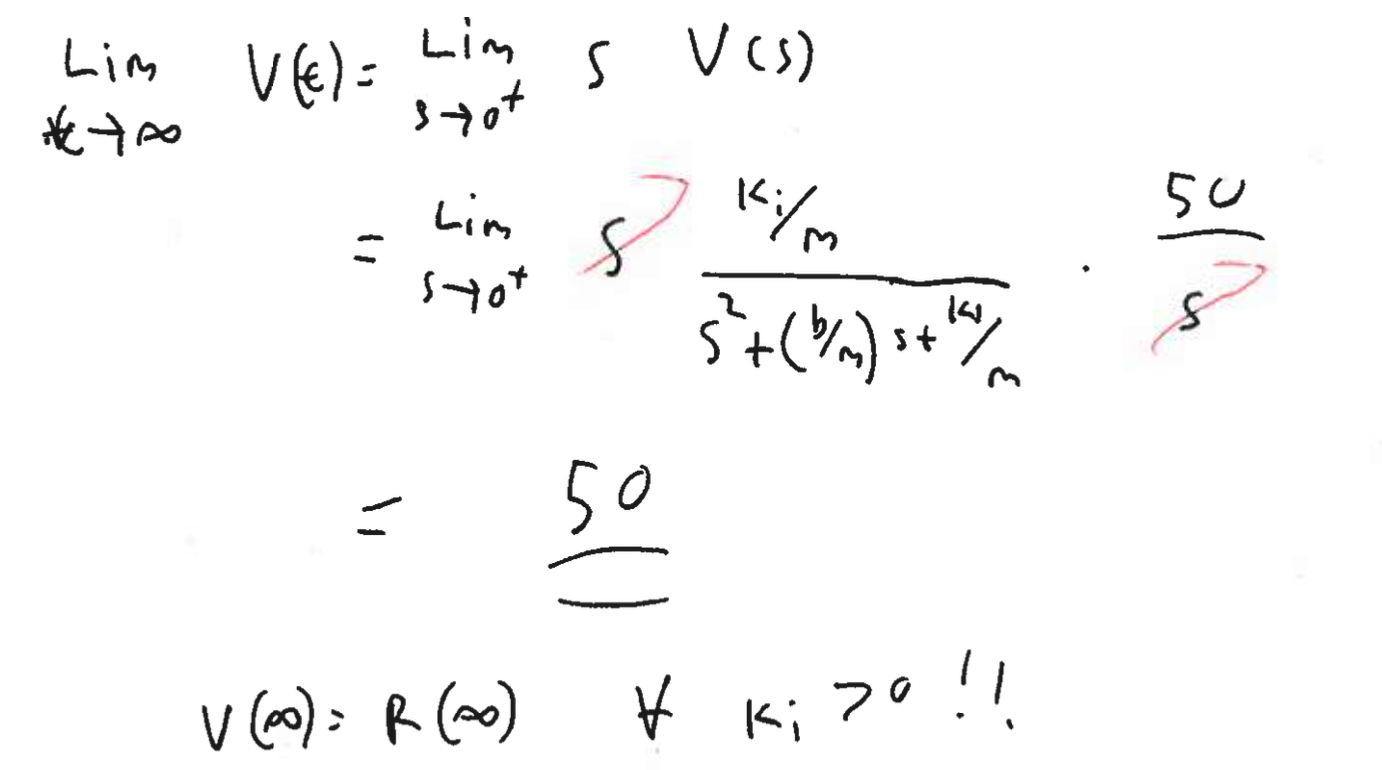 Lim t→∞ V(t) = Lim s→0⁺ s V(s)
= Lim s→0⁺ s (Ki/m) / (s² + (b/m) s + Ki/m) · 50/s
= 50
V(∞) = R(∞) ∀ Ki > 0 !!